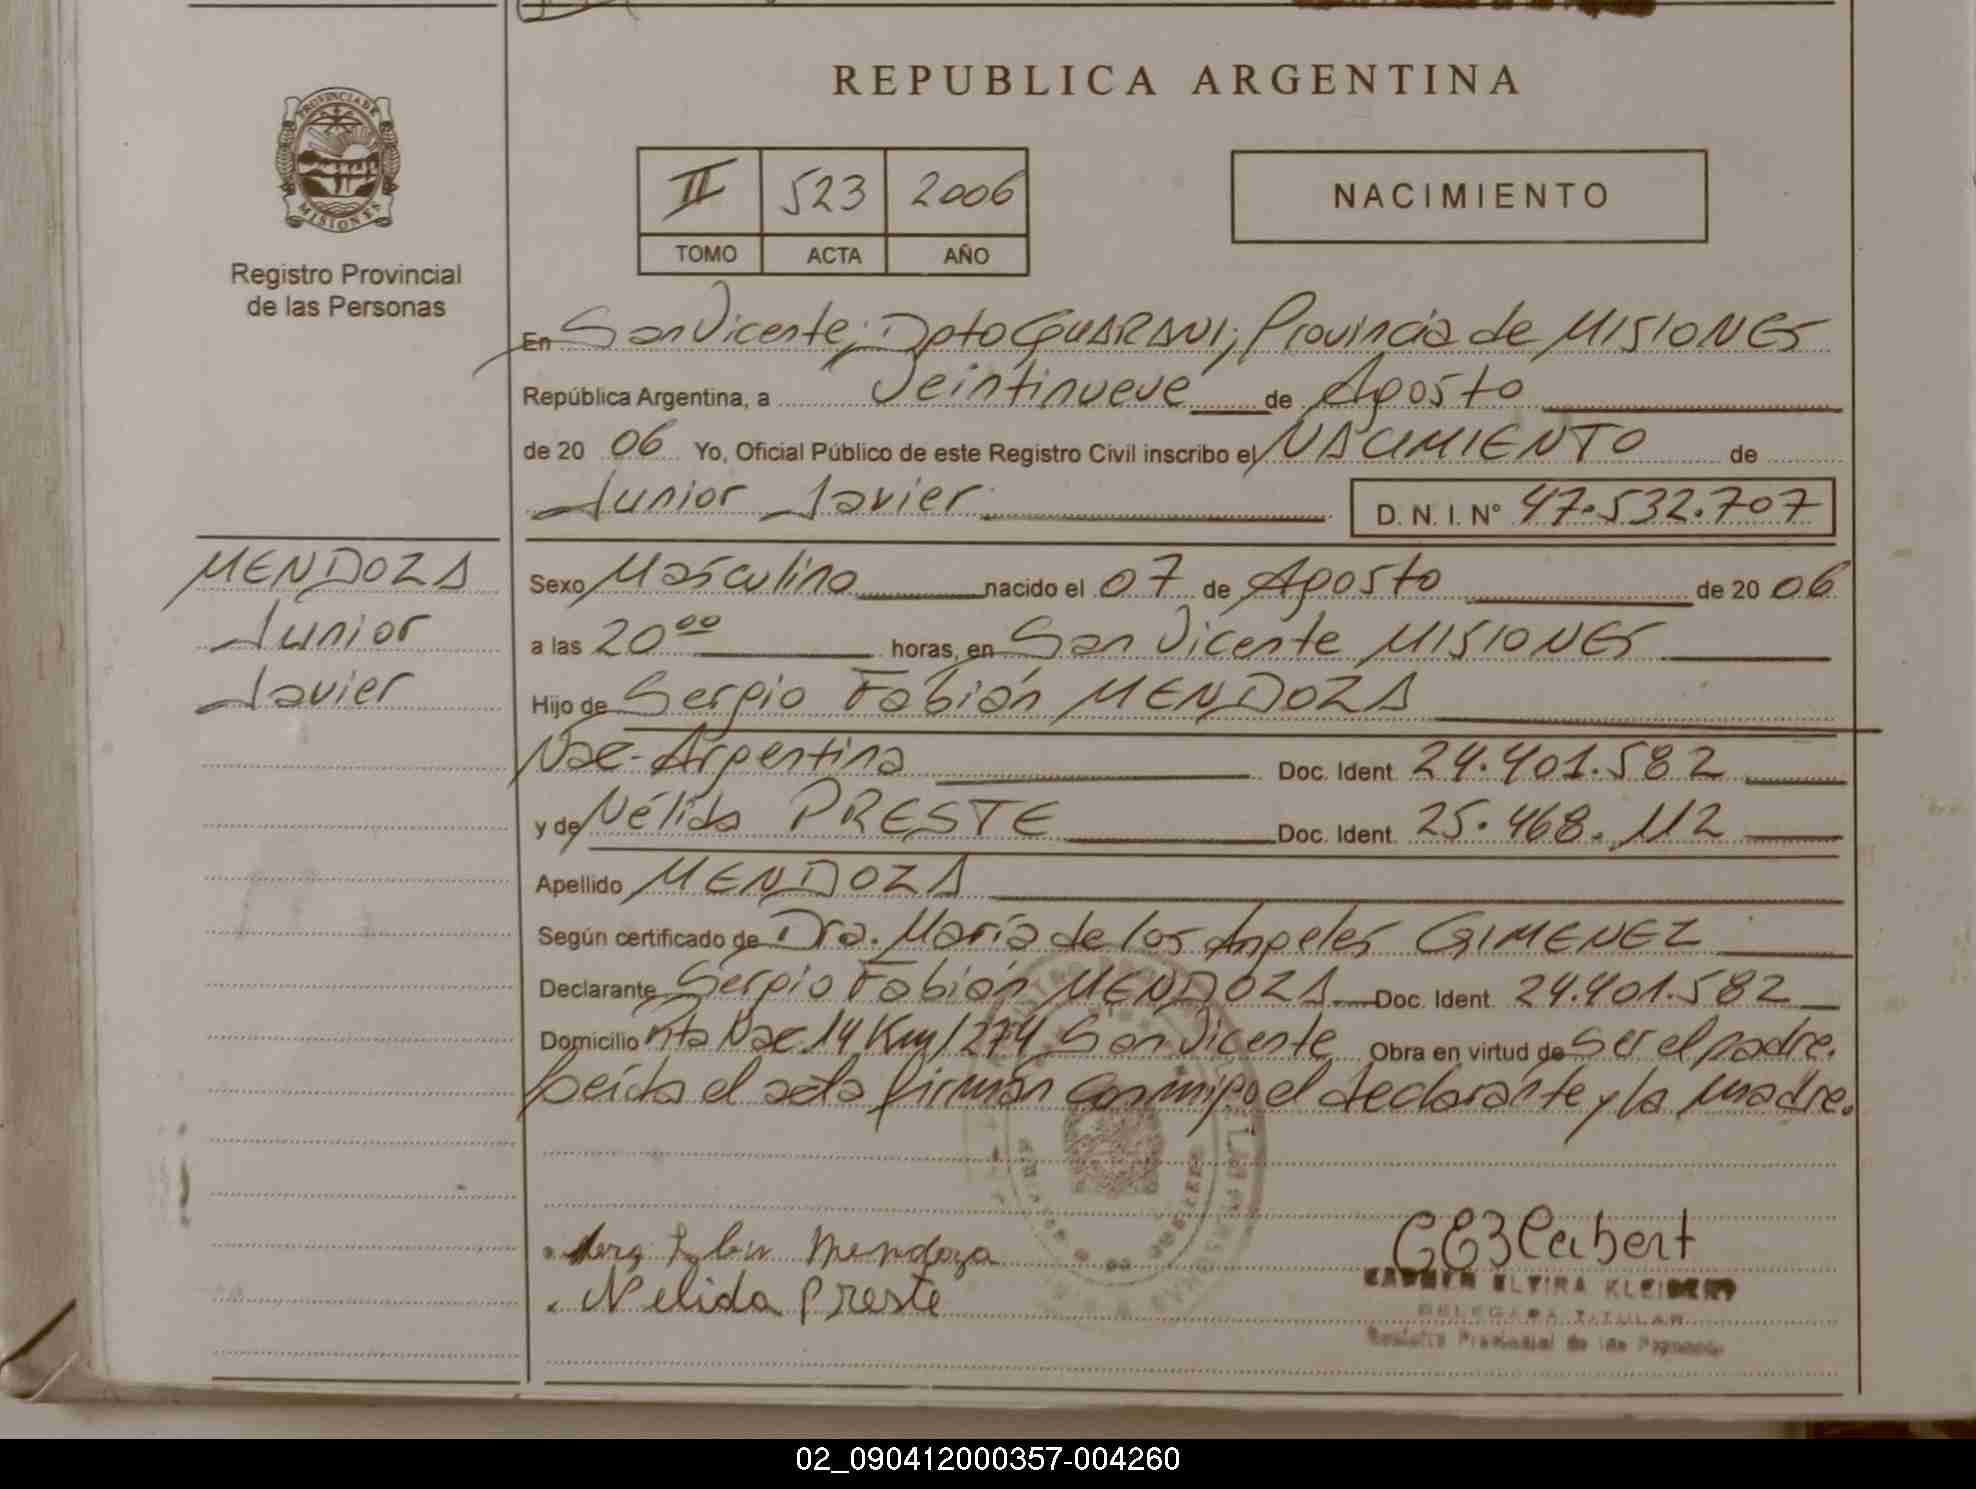 REPUBLICA ARGENTINA
PROVINCIA DE
MISIONES
Registro Provincial
de las Personas
II 523 2006
TOMO ACTA AÑO
NACIMIENTO
En San Vicente; Dpto GUARANI; Provincia de MISIONES
República Argentina, a Veintinueve de Agosto
de 20 06 Yo, Oficial Público de este Registro Civil inscribo el NACIMIENTO de
Junior Javier D. N. I. N° 47.532.707
MENDOZA
Junior
Javier
Sexo Masculino nacido el 07 de Agosto de 20 06
a las 20 00 horas, en San Vicente MISIONES
Hijo de Sergio Fabián MENDOZA
Nac-Argentina Doc. Ident. 24.401.582
y de Nélida PRESTE Doc. Ident. 25.468.112
Apellido MENDOZA
Según certificado de Dra. María de los Angeles GIMENEZ
Declarante Sergio Fabián MENDOZA Doc. Ident. 24.401.582
Domicilio rta Nac. 14 Km/274 San Vicente Obra en virtud de Ser el padre.
Leída el acta firman conmigo el declarante y la madre.
Mendoza
Nelida Preste
CARMEN ELVIRA KLEIBERT
DELEGADA TITULAR
Registro Provincial de las Personas
02_090412000357-004260